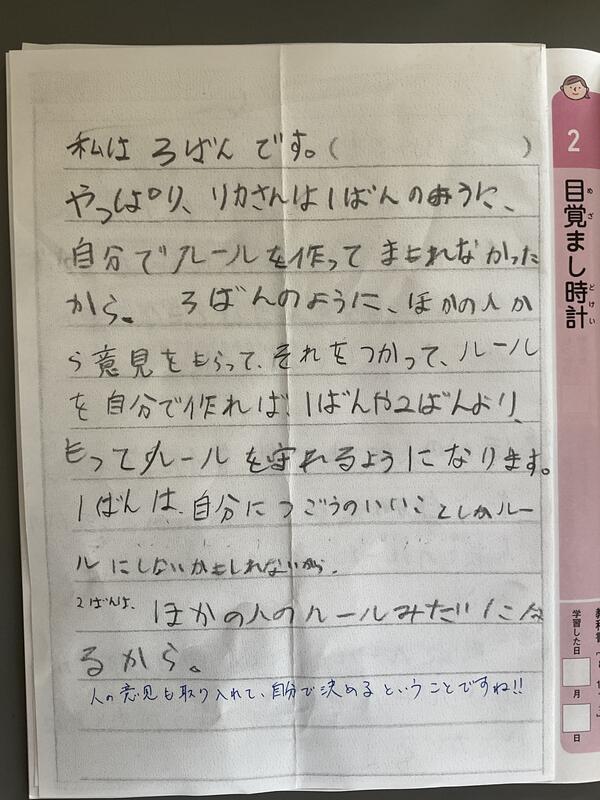 私は 3ばん です。(　　　)
やっぱり、リカさんは1ばんのように、
自分でルールを作って まもれなかった
から。 3ばんのように、ほかの人か
ら意見をもらって、それをつかって、ルール
を自分で作れば、1ばんや2ばんより、
もってルールを守れるようになります。
1ばんは、自分につごうのいいことしかルー
ルにしないかもしれないから。
2ばんは、ほかの人のルールみたいにな
るから。
人の意見も取り入れて、自分で決めるということですね!!
2
目覚まし時計
めざ
どけい
学習した日
月
日
教科書